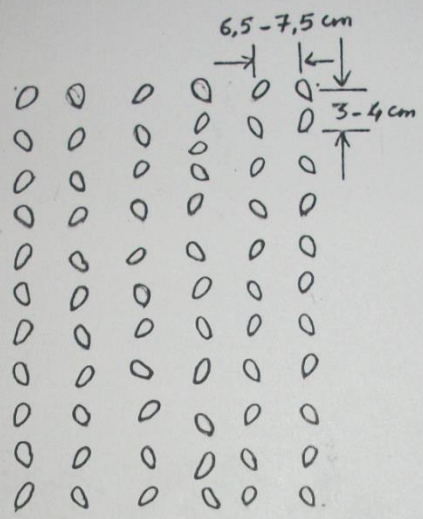 6,5-7,5 cm
3-4 cm